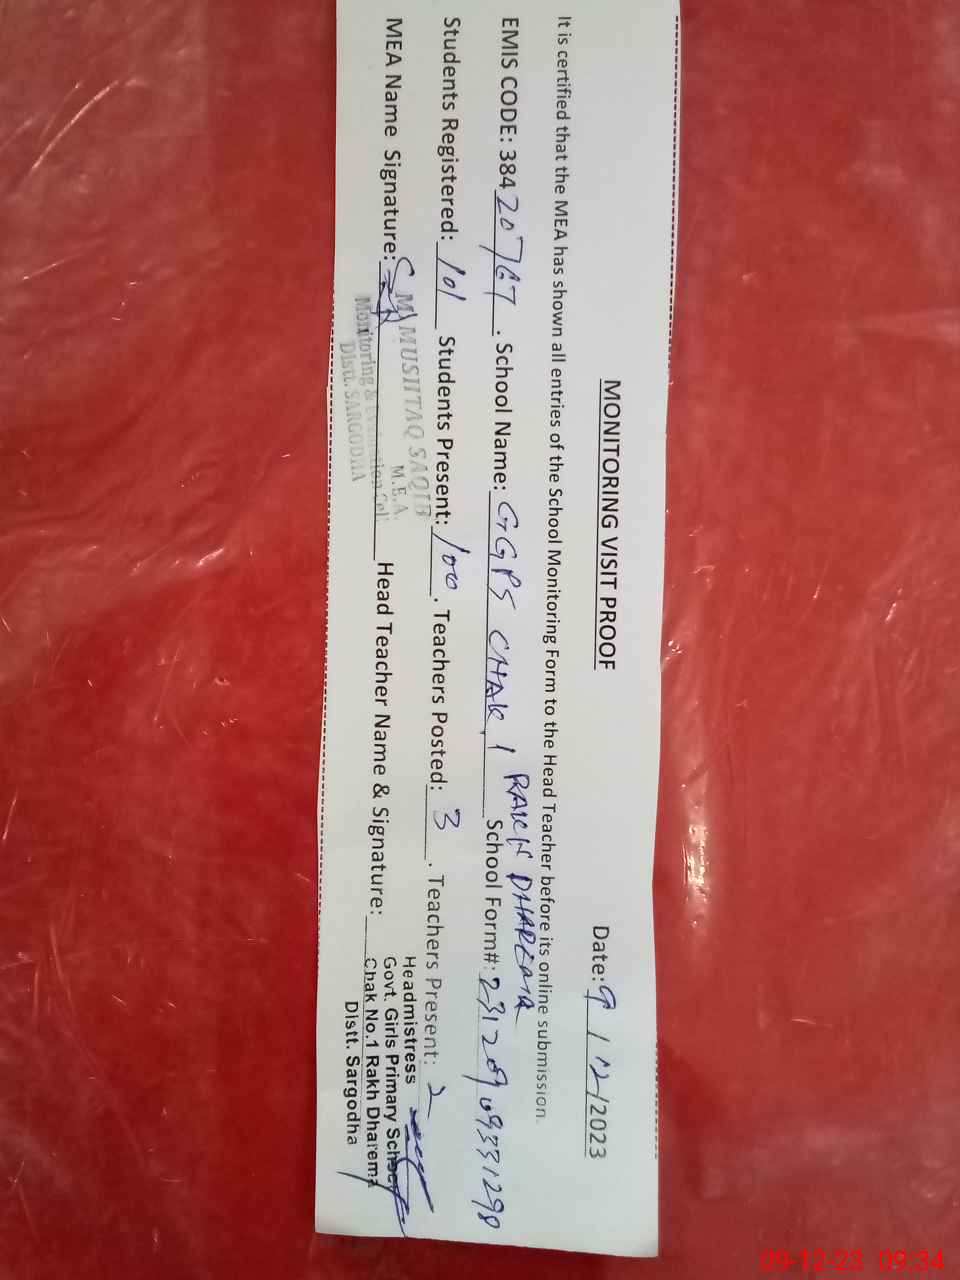 MONITORING VISIT PROOF
Date: 9/12/2023
It is certified that the MEA has shown all entries of the School Monitoring Form to the Head Teacher before its online submission.
EMIS CODE: 38420767. School Name: GGPS CHAK 1 RAKH DHAREMA School Form#: 23120909331298
Students Registered: 101 Students Present: 100. Teachers Posted: 3. Teachers Present: 2
MEA Name Signature: Head Teacher Name & Signature:
MUSHTAQ SAQIB
M.E.A.
Monitoring & Evaluation Cell
Distt. SARGODHA
Headmistress
Govt. Girls Primary School
Chak No.1 Rakh Dharema
Distt. Sargodha
09-12-23 09:34